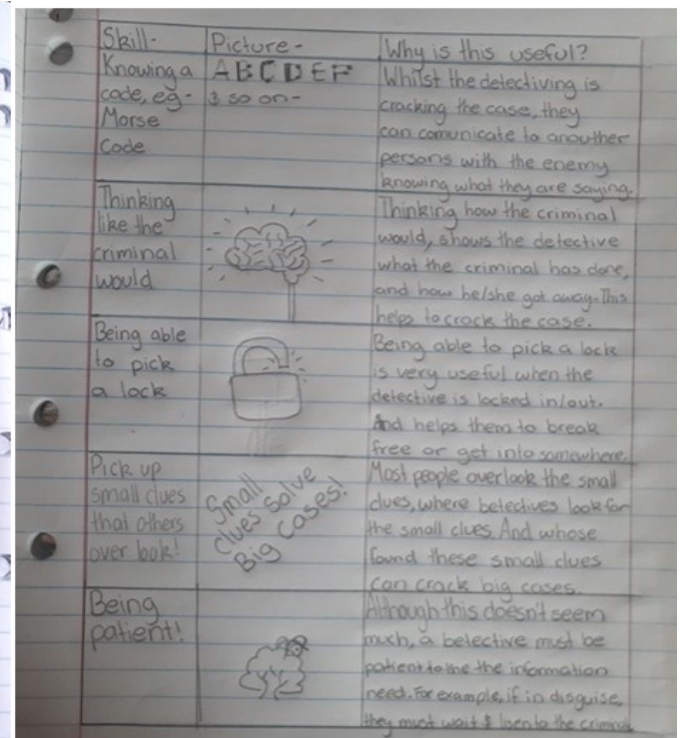 Skill-
Picture-
Why is this useful?
Knowing a
code, eg-
Morse
Code
A B C D E F
& so on-
Whilst the detectiving is
cracking the case, they
can comunicate to anouther
persons with the enemy
knowing what they are saying.
Thinking
like the
criminal
would
Thinking how the criminal
would, shows the detective
what the criminal has done,
and how he/she got away. This
helps to crack the case.
Being able
to pick
a lock
Being able to pick a lock
is very useful when the
detective is locked in/out.
And helps them to break
free or get into somewhere.
Pick up
small clues
that others
over look!
Small
clues solve
Big Cases!
Most people overlook the small
clues, where betectives look for
the small clues. And whose
found these small clues
can crack big cases.
Being
patient!
Although this doesn't seem
much, a betective must be
patient to the information
need. For example, if in disguise,
they must wait & to the criminal